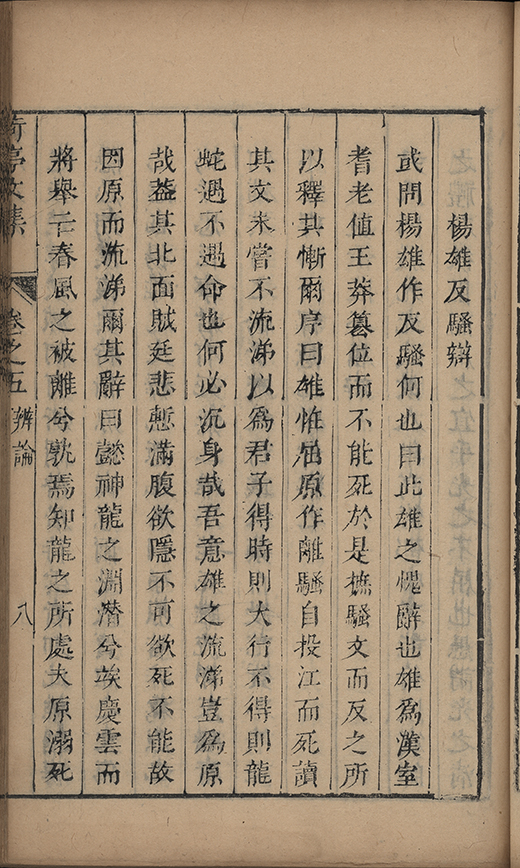 楊雄反騷辯
或問楊雄作反騷何也曰此雄之愧辭也雄爲漢室
耆老值王莽簒位而不能死於是摭騷文而反之所
以釋其慚爾序曰雄恠屈原作離騷自投江而死讀
其文未嘗不流涕以爲君子得時則大行不得則龍
蛇遇不遇命也何必沉身哉吾意雄之流涕豈爲原
哉葢其北面賊廷悲慙滿腹欲隱不可欲死不能故
因原而流涕爾其辭曰懿神龍之淵潛兮竢慶雲而
將舉亡春風之被離兮孰焉知龍之所處夫原溺死
亭文集
卷之五 辨論
八